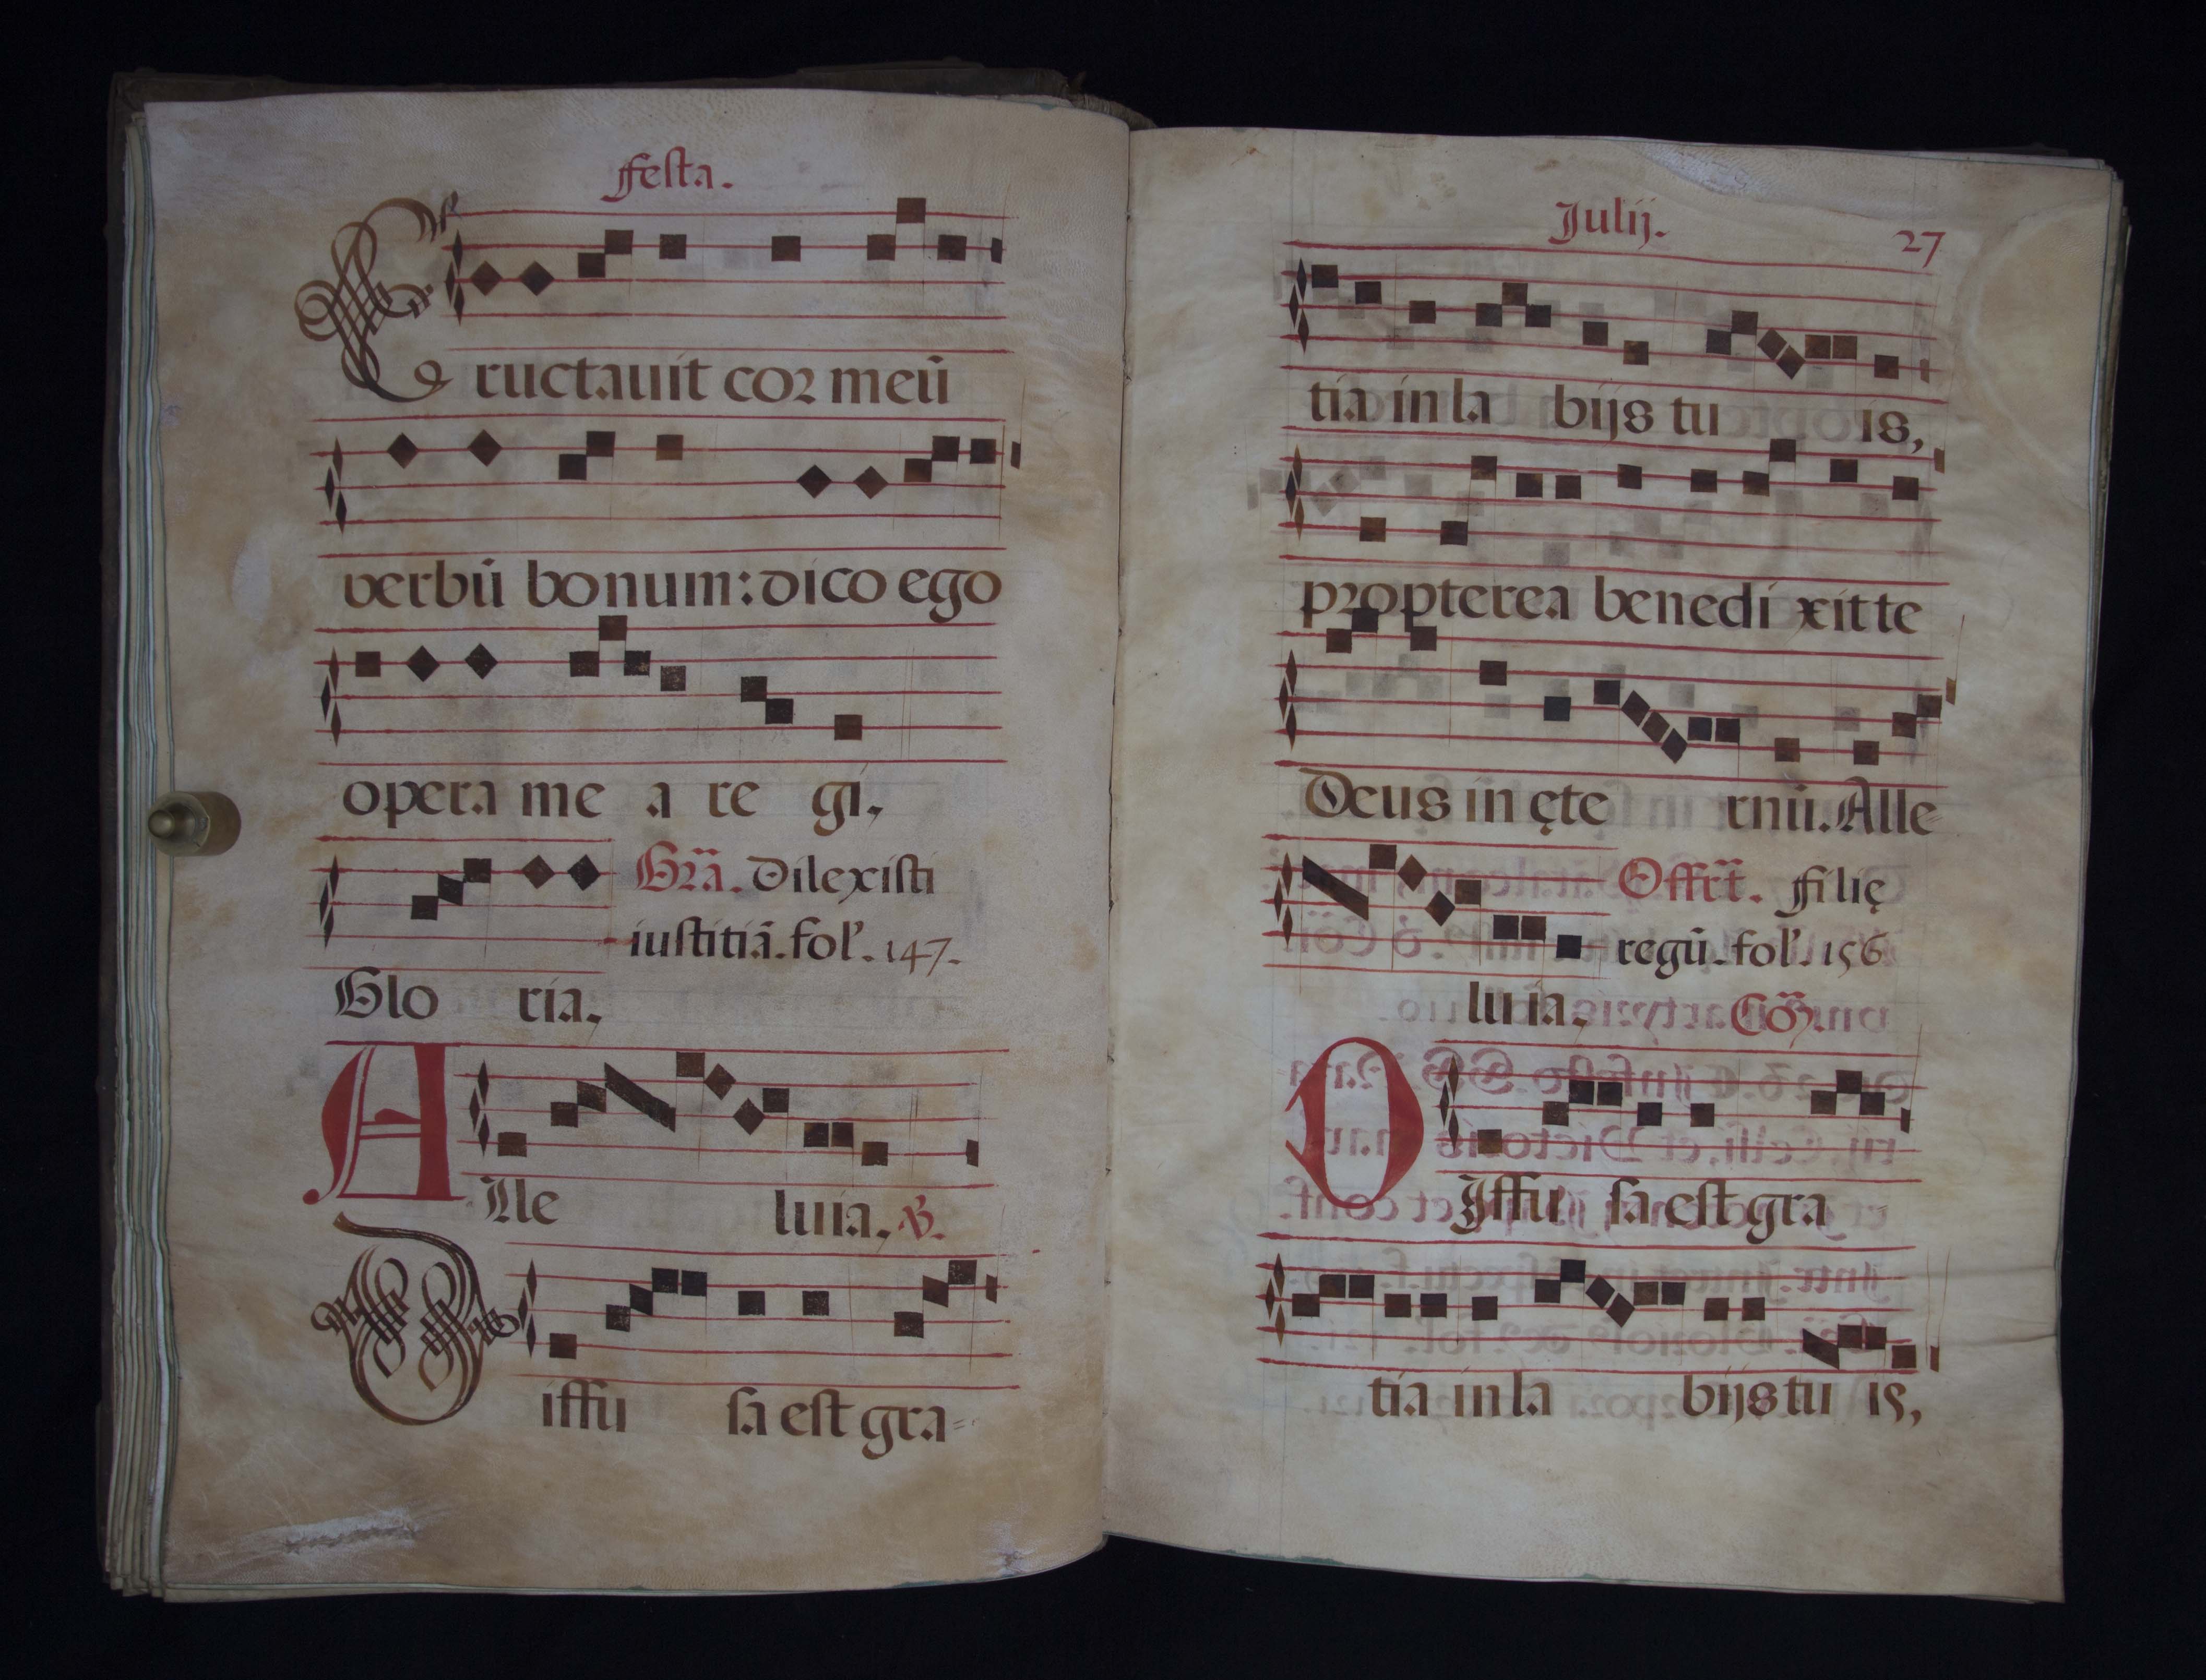 Festa.
Eructauit cor meū
verbū bonum: dico ego
opera me a re gi.
Grā. Dilexisti
iustitiā. fol. 147.
Glo ria.
Alle luia. ℣.
Diffu sa est gra-
Julij.
27
tia in la bijs tu is,
propterea benedi xit te
Deus in ęte rnū. Alle-
Offrt. Filię
regū. fol. 156
luia. Cō.
DIffu sa est gra
tia in la bijs tu is,